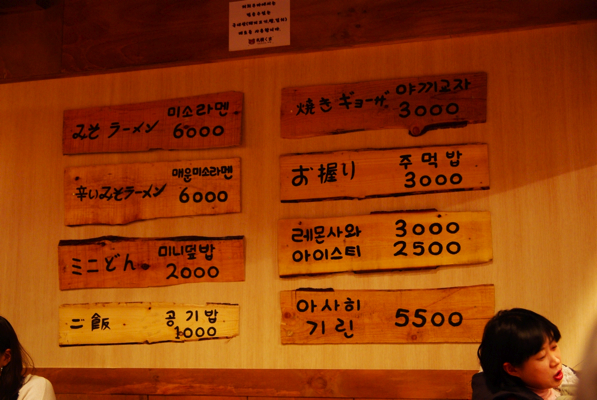 みそ ラーメン 미소라멘 6000
辛いみそラーメン 매운미소라멘 6000
ミニどん 미니덮밥 2000
ご飯 공기밥 1000
焼き ギョーザ 야끼교자 3000
お握り 주먹밥 3000
레몬사와 3000
아이스티 2500
아사히
기린 5500